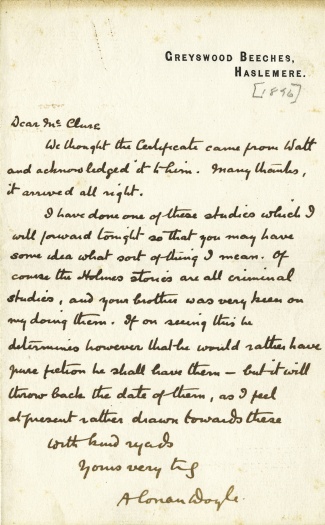 GREYSWOOD BEECHES,
HASLEMERE.
[1896]
Dear McClure
We thought the Certificate came from Watt
and acknowledged it to him. Many thanks,
it arrived all right.
I have done one of these studies which I
will forward tonight so that you may have
some idea what sort of thing I mean. Of
course the Holmes stories are all criminal
studies, and your brother was very keen on
my doing them. If on seeing this he
determines however that he would rather have
pure fiction he shall have them — but it will
throw back the date of them, as I feel
at present rather drawn towards these
With kind regards
Yours very
A Conan Doyle.